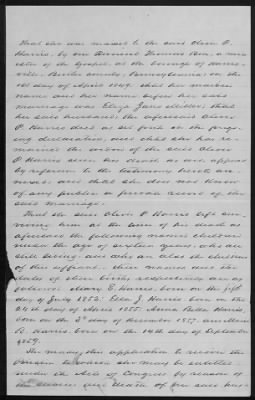 That she was married to the said Oliver P.
Harris, by one Reverend Thomas, a min-
ister of the Gospel, at the borough of Harris-
ville, Butler county, Pennsylvania; on the
1st day of April 1849, that her maiden
name and her name before her said
marriage was Eliza Jane; that
her said husband, the aforesaid Oliver
P. Harris died as set forth in the forego-
ing declaration, and that she has re-
mained the widow of the said Oliver
P. Harris since his death, as will appear
by reference to the testimony hereto an-
nexed; and that she does not know
of any public or private record of the
said marriage.
That the said Oliver P. Harris left sur-
viving him at the time of his death as
aforesaid the following named children
under the age of sixteen years; who are
still living, and who are also the children
of this affiant, their names and the
dates of their birth being respectively as
follows: Mary E. Harris, born on the
day of July 1852; Ella J. Harris born on the
24th day of April 1855; Anna Bella Harris,
born on the 3d day of December 1857; and
R. Harris born on the 14th day of September
1859.
She makes this application to receive the
Pension to which she may be entitled
under the Acts of Congress by reason of
the service and death of her said hus-